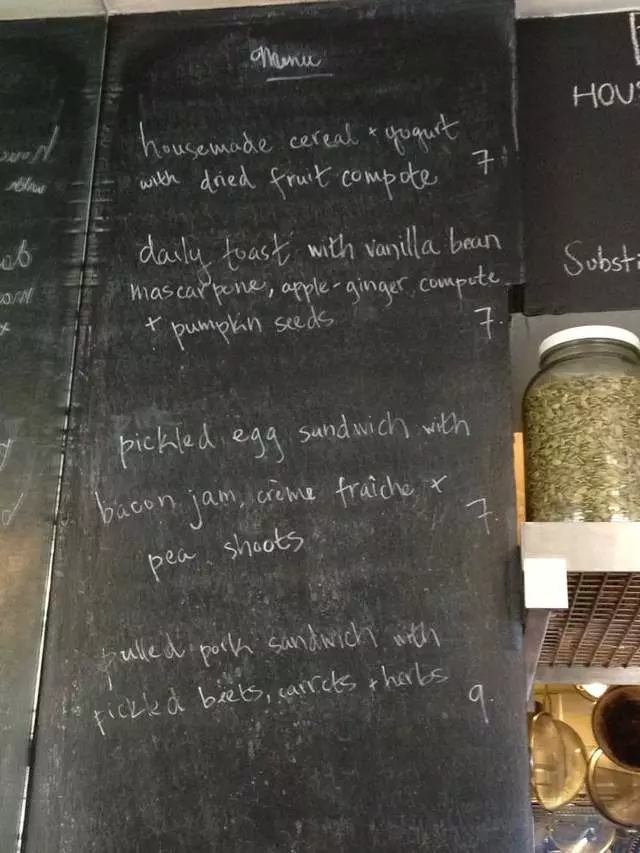 Menu
housemade cereal + yogurt
with dried fruit compote 7.
daily toast with vanilla bean
mascarpone, apple-ginger compote
+ pumpkin seeds 7.
pickled egg sandwich with
bacon jam, crème fraîche +
pea shoots 7.
pulled pork sandwich with
pickled beets, carrots + herbs 9.
HOUS
Substi